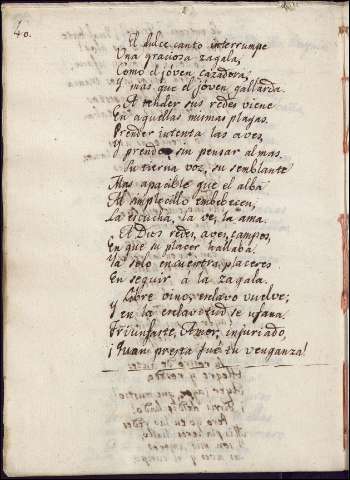 40.
El dulce canto interrumpe
Una graciosa zagala,
Como el jóven cazadora,
Y mas que el jóven gallarda.
A tender sus redes viene
En aquellas mismas playas.
Prender intenta las aves,
Y prende sin pensar almas.
Su tierna voz, su semblante
Mas apacible que el alba
Al simplecillo embebecen;
La escucha, la ve, la ama.
A Dios redes, aves, campos,
En que su placer hallaba.
Ya solo encuentra placeres
En seguir á la zagala.
Libre vino, esclavo vuelve;
Y en la esclavitud se ufana.
Triunfaste, Amor, injuriado,
¡Quan presta fue tu venganza!